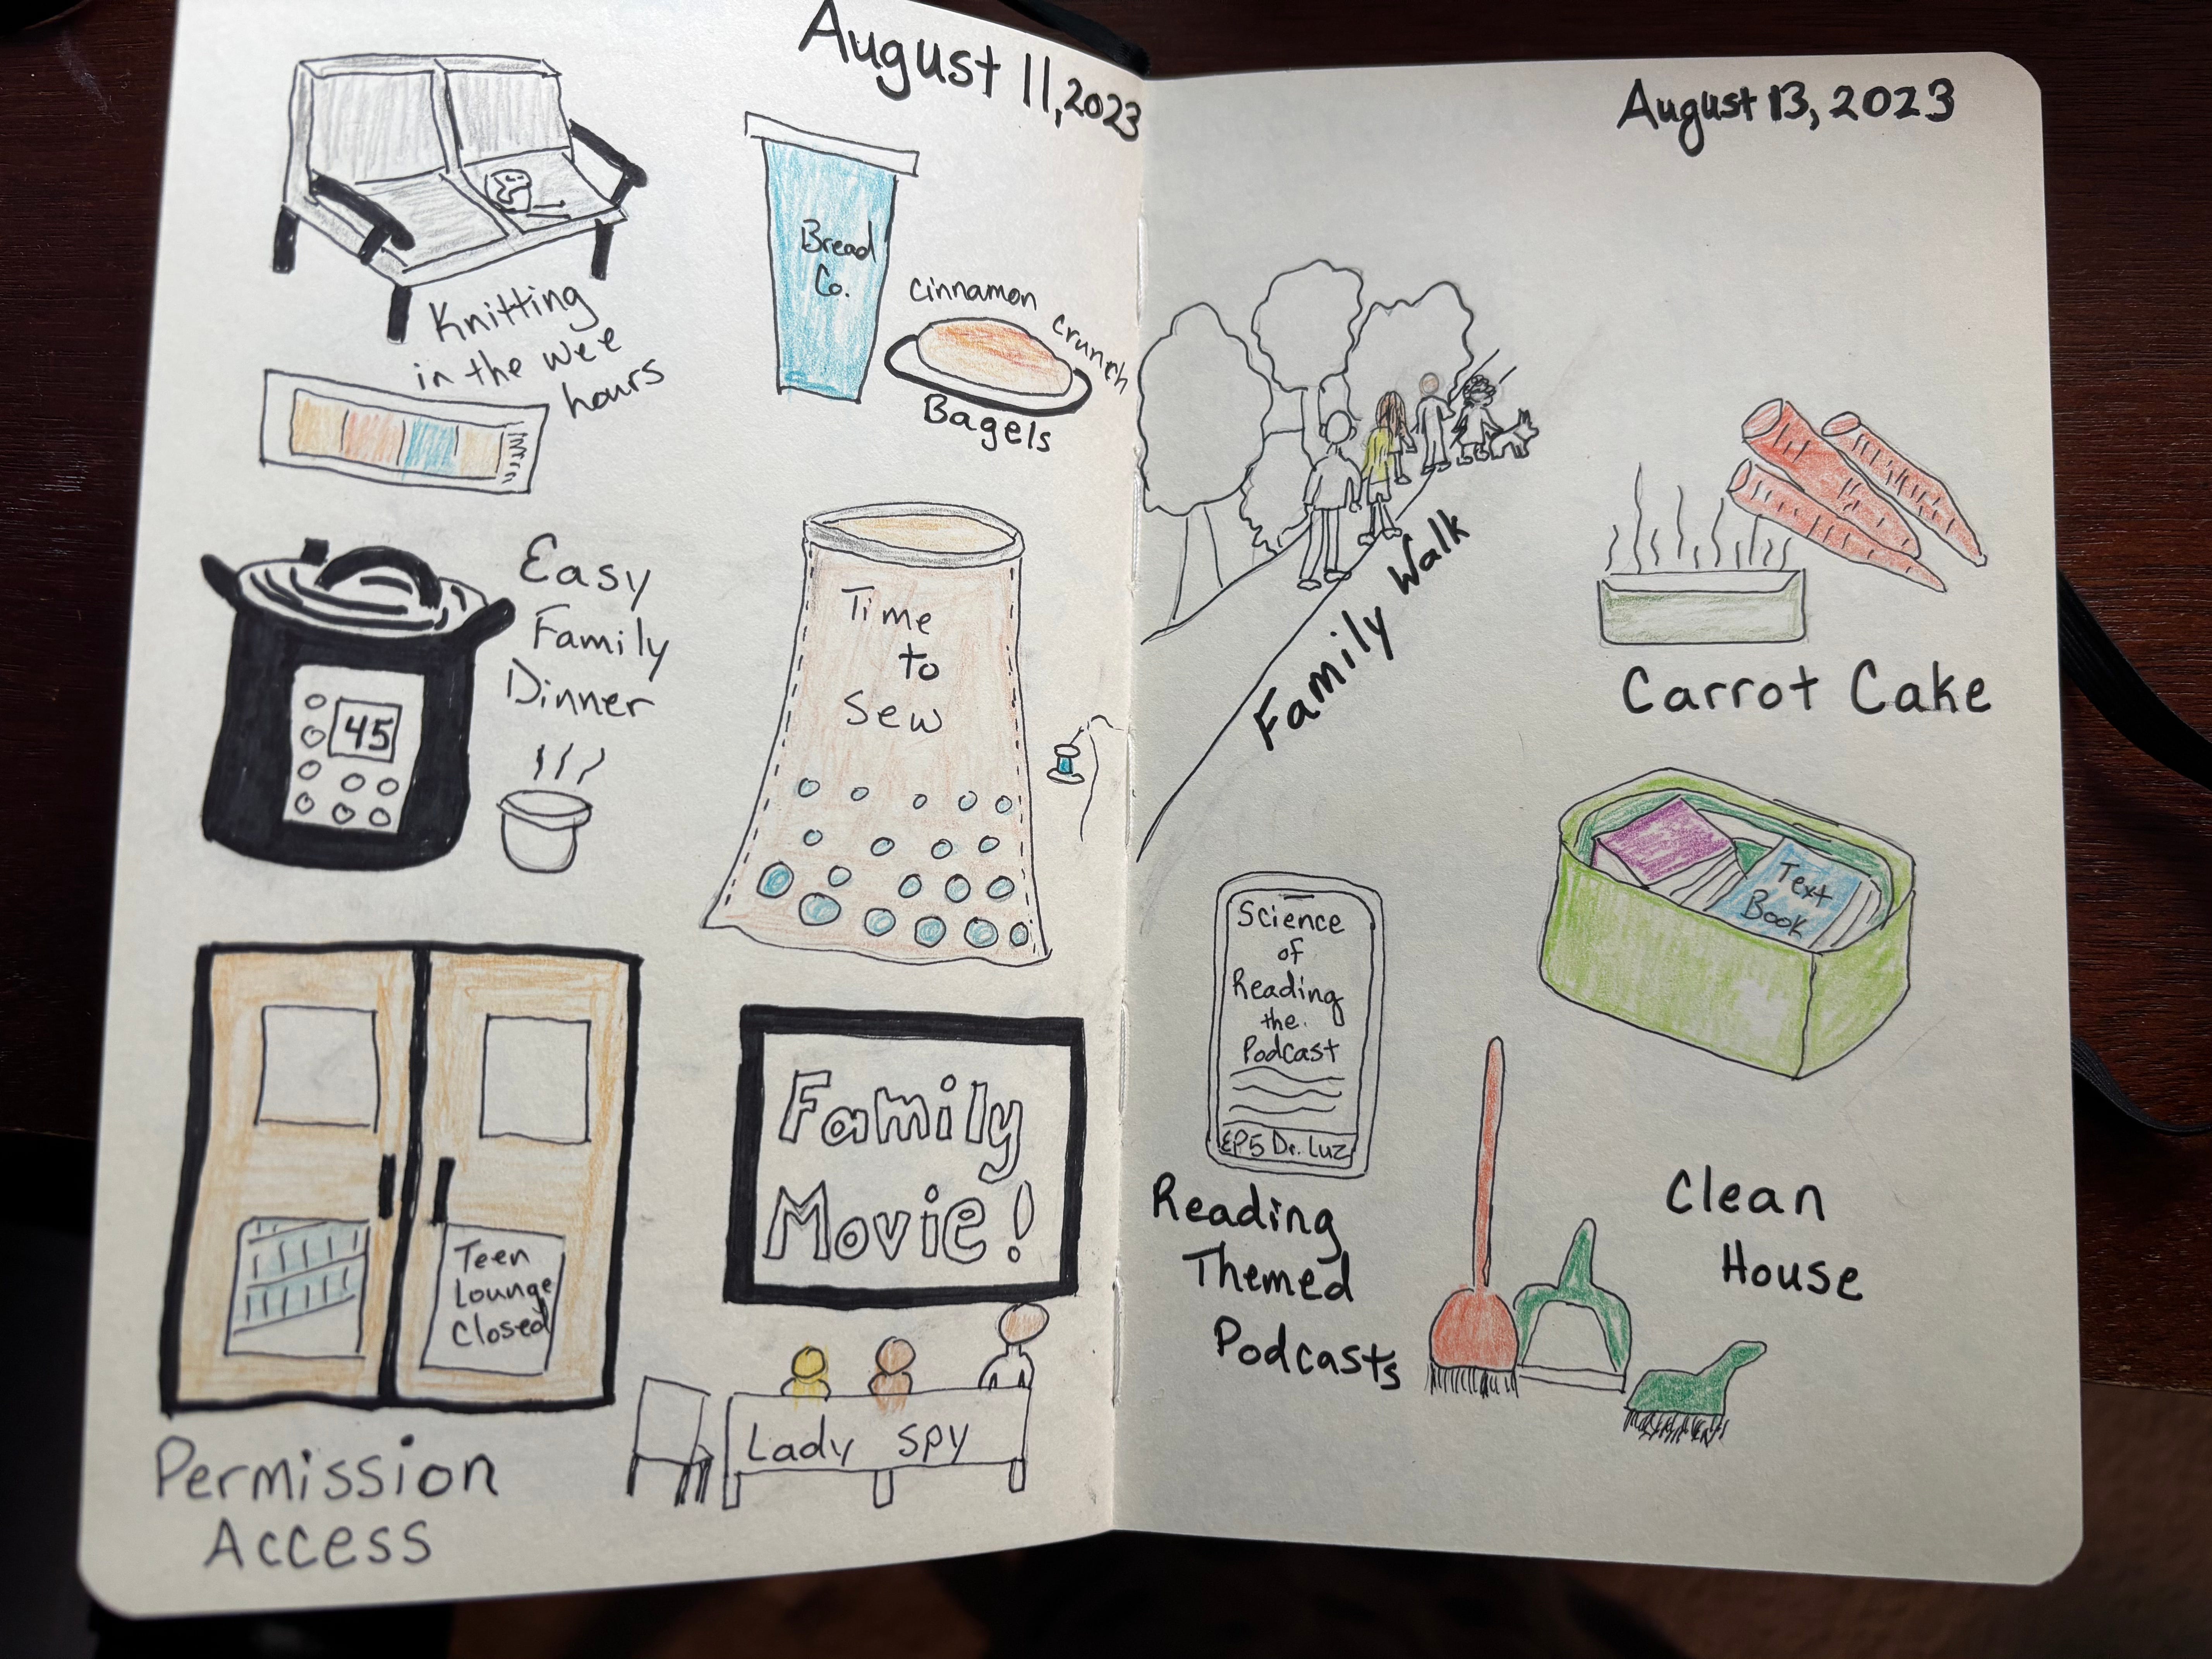 August 11, 2023
Knitting
in the wee
hours
Bread
Co.
cinnamon crunch
Bagels
Easy
Family
Dinner
45
Time
to
Sew
Teen
Lounge
Closed
Permission
Access
Family
Movie!
Lady Spy
August 13, 2023
Family Walk
Carrot Cake
Text
Book
Science
of
Reading
the
Podcast
EP5 Dr. Luz
Reading
Themed
Podcasts
Clean
House